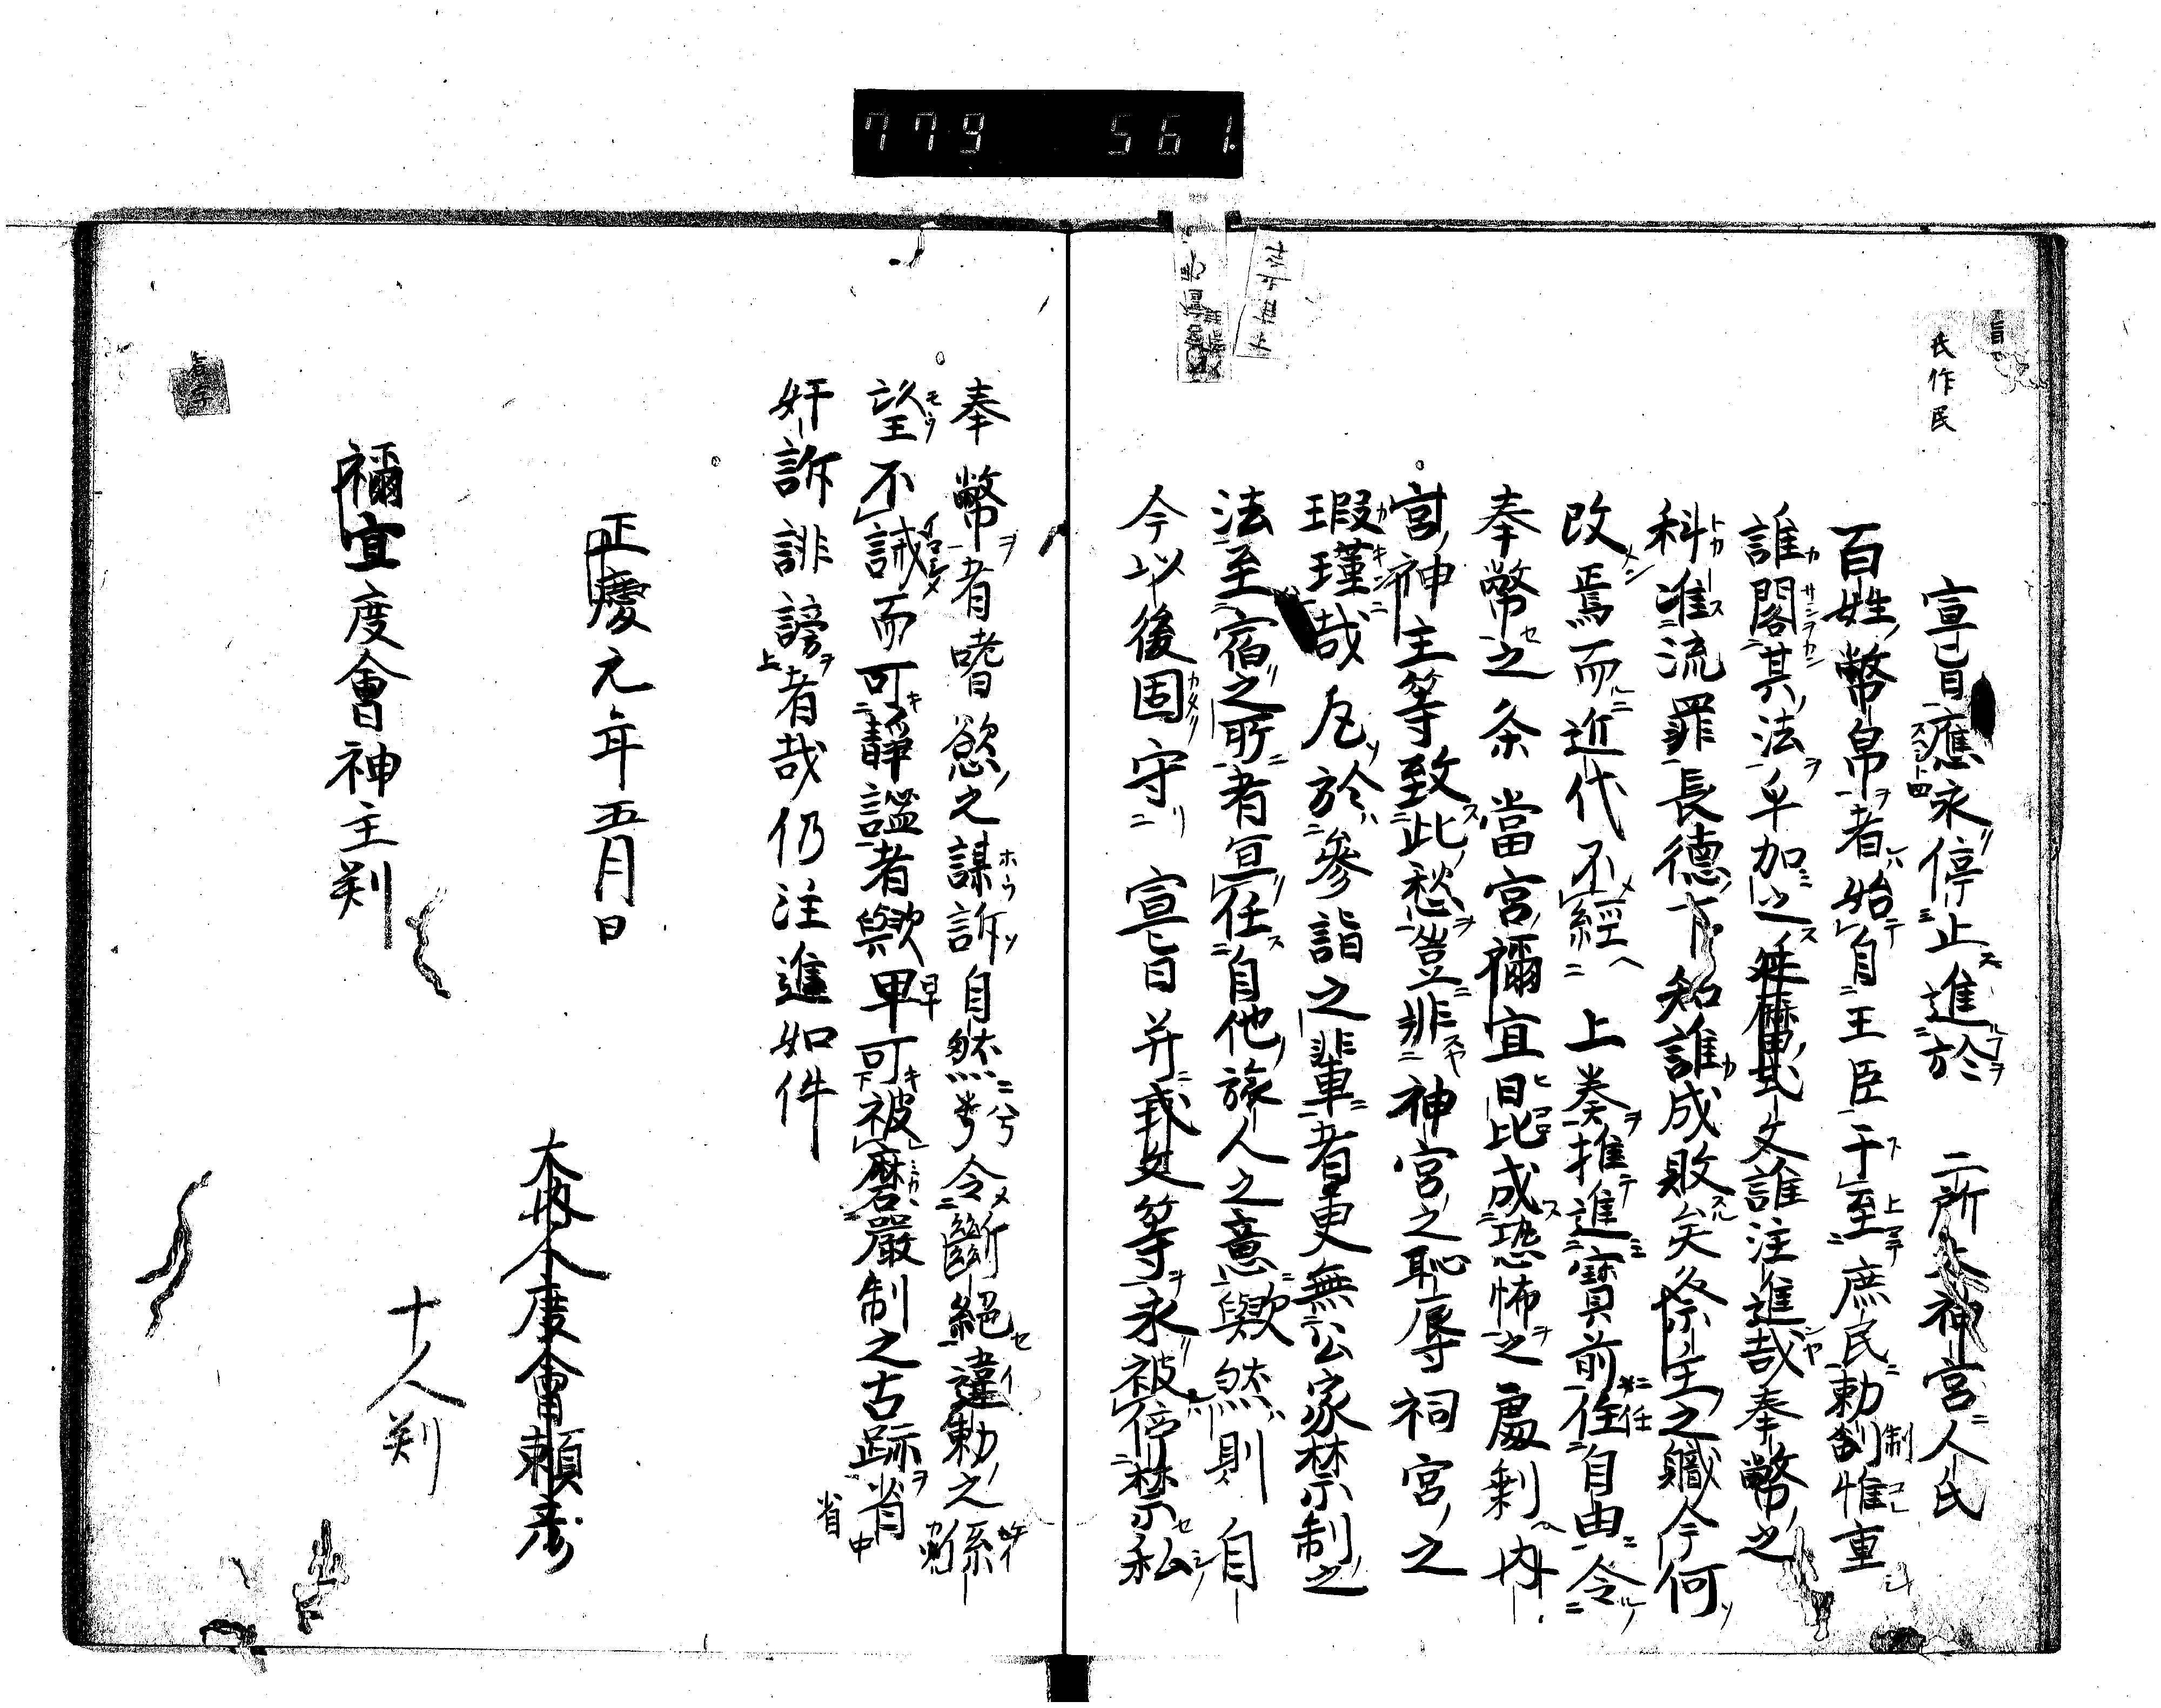 779 561
氏作民
宣旨應永停止進於 二所太神宮人氏
百姓幣帛者始自王臣于至庶民勅制惟重
誰閣其法乎加之延暦其文誰注進哉奉幣之
科准流罪長德下知誰成敗矣祭主之職今何
改焉而近代不經 上奏推進寶前任自由令
奉幣之条當宮禰宜日比成恐怖之處剰内
宮神主等致此愁豈非神宮之恥辱祠宮之
瑕瑾哉凡於參詣之輩者更無公家禁制之
法至宿之所者宜任自他旅人之意歟然則自
今以後固守 宣旨并式文等永被停禁私
奉幣者嗜慾之謀訴自然兮令斷絕違勅之係
望不誡而可靜謐者歟早可被磨嚴制之古跡肖
省
奸訴誹謗者哉仍注進如件
正慶元年五月日
大内人度會頼彦
禰宜度會神主判
十人判